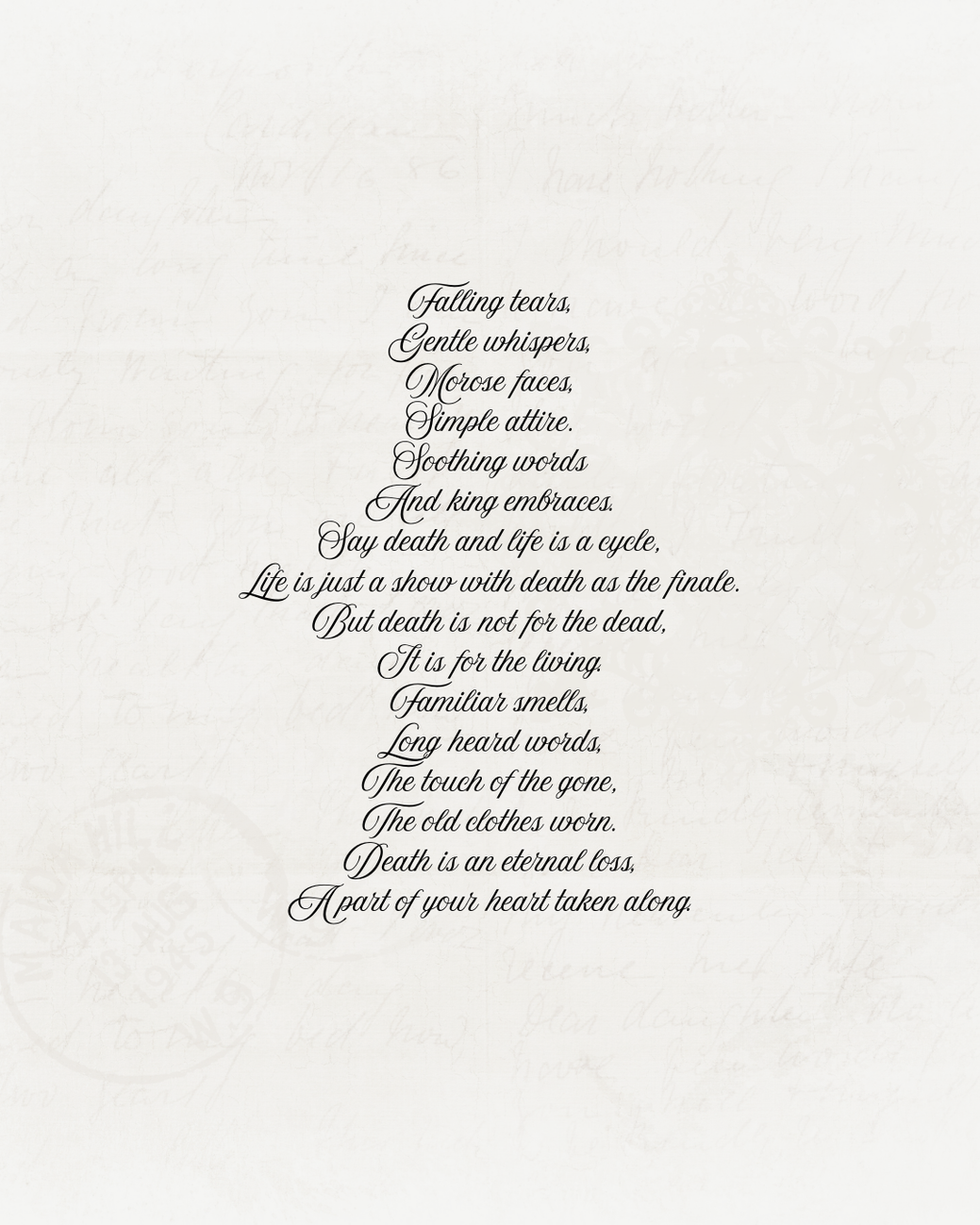 Falling tears,
Gentle whispers,
Morose faces,
Simple attire.
Soothing words
And king embraces.
Say death and life is a cycle,
Life is just a show with death as the finale.
But death is not for the dead,
It is for the living.
Familiar smells,
Long heard words,
The touch of the gone,
The old clothes worn.
Death is an eternal loss,
A part of your heart taken along.